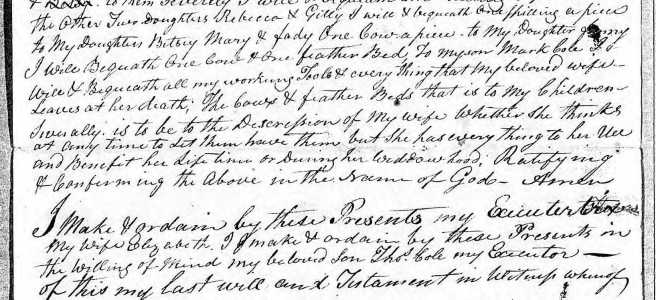 to them Severely I will &
the Other Two Daughters Rebecca & Gilly I will & bequeath One Shilling a piece
to My Daughters Bitsey Mary & Jady One Cow a piece. to My Daughter
I Will Bequath One Cow & One feather Bed, To my son Mark Cole I do
Will & Bequeath all my working Tools & everything that My beloved wife
Leaves at her death; The Cows & feather Beds that is to My Children
Siverally. is to be to the Descression of My wife Whether She thinks
at any time to Let them have them but She has every thing to her Use
and Benefit her Life time or During her Weddowhood; Ratifying
& Confirming the Above in the Name of God - Amen
I Make & ordain by these Presents my Executer
My Wife Elizabeth, I make & ordain by these Presents in
the Willing of Mind my beloved Son Thos. Cole my Executor —
of this my last will and Testament in Witness whereof